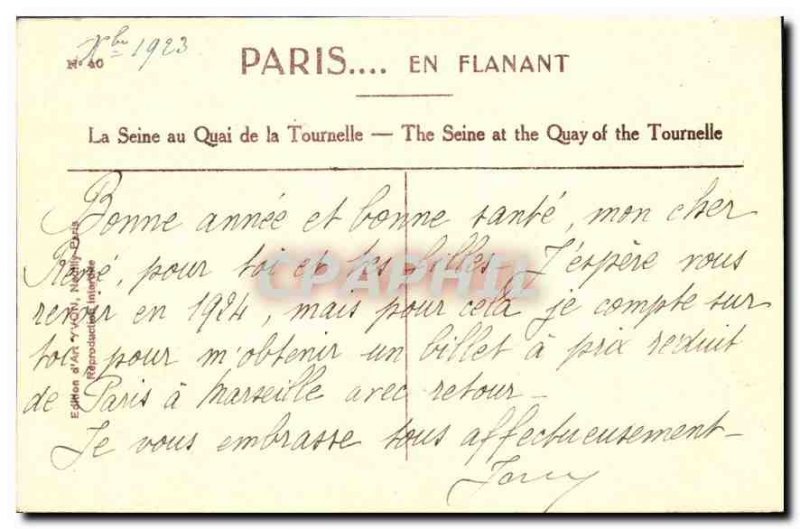 Xbre 1923
No 40
PARIS.... EN FLANANT
La Seine au Quai de la Tournelle — The Seine at the Quay of the Tournelle
Bonne année et bonne santé, mon cher
René, pour toi et tes filles. J'espère vous
revoir en 1924, mais pour cela je compte sur
toi pour m'obtenir un billet à prix réduit
de Paris à Marseille avec retour -
Je vous embrasse tous affectueusement -
Edition d'Art YVON, Neuilly-Paris
Reproduction Interdite
CPAPHIL